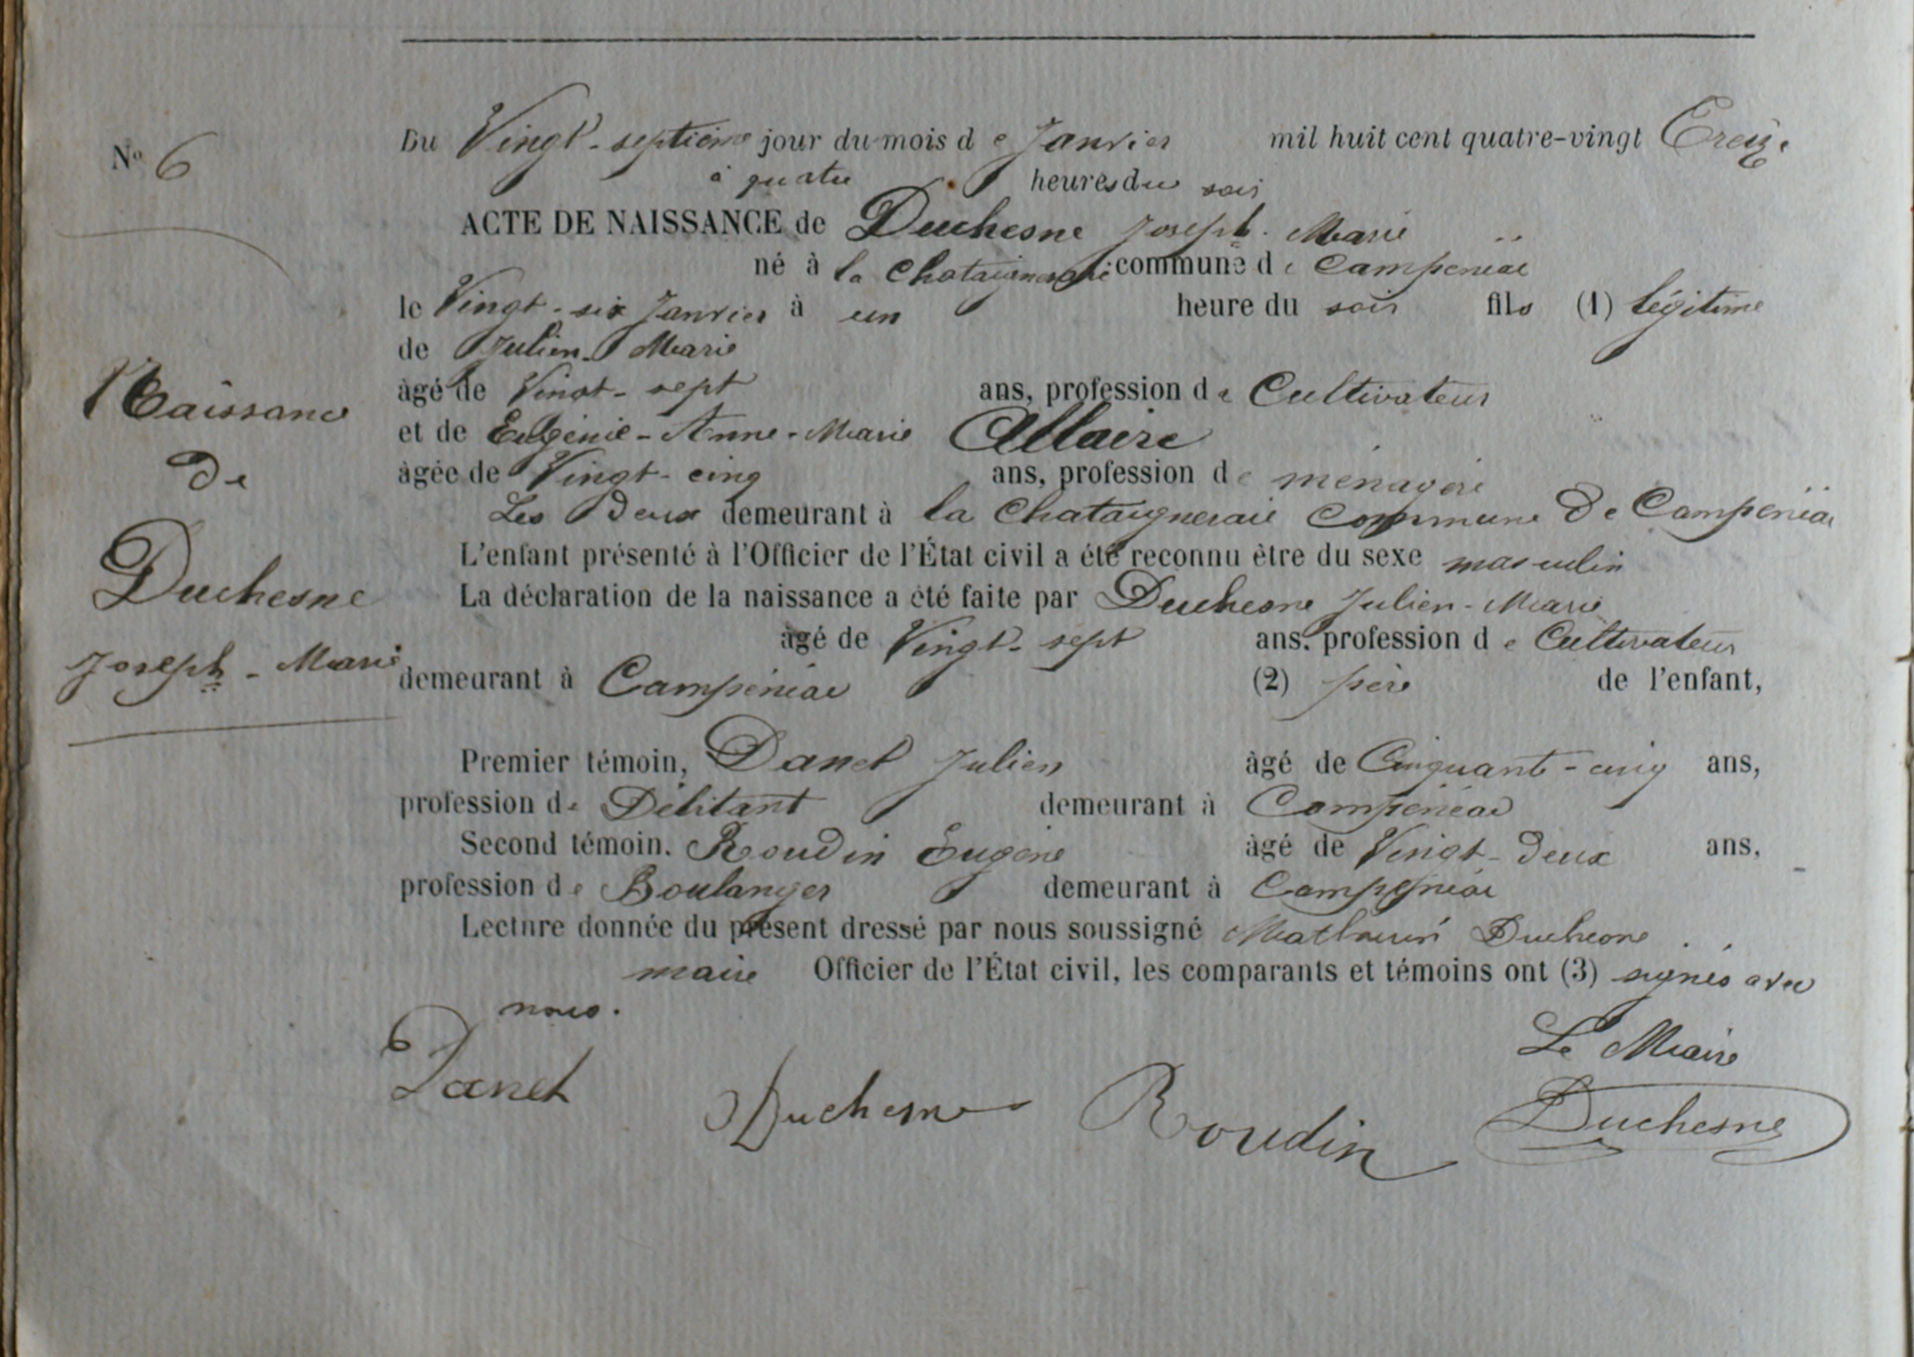 Nº 6
Du Vingt-septième jour du mois de Janvier mil huit cent quatre-vingt Treize
à quatre heures du soir
ACTE DE NAISSANCE de Duchesne Joseph-Marie
né à la Chataigneraie commune de Campénéac
le Vingt-six Janvier à un heure du soir fils (1) légitime
de Julien-Marie
âgé de Vingt-sept ans, profession de Cultivateur
et de Eugénie-Anne-Marie Allaire
âgée de Vingt-cinq ans, profession de ménagère
Les Deux demeurant à la Chataigneraie Commune De Campénéac
L'enfant présenté à l'Officier de l'État civil a été reconnu être du sexe masculin
La déclaration de la naissance a été faite par Duchesne Julien-Marie
âgé de Vingt-sept ans. profession de Cultivateur
demeurant à Campénéac (2) père de l'enfant,
Naissance
De
Duchesne
Joseph-Marie
Premier témoin, Danet Julien âgé de Cinquante-cinq ans,
profession de Débitant demeurant à Campénéac
Second témoin. Roudin Eugène âgé de Vingt-deux ans,
profession de Boulanger demeurant à Campénéac
Lecture donnée du présent dressé par nous soussigné Mathurin Duchesne
maire Officier de l'État civil, les comparants et témoins ont (3) signés avec
nous.
Le Maire
Danet Duchesne Roudin Duchesne